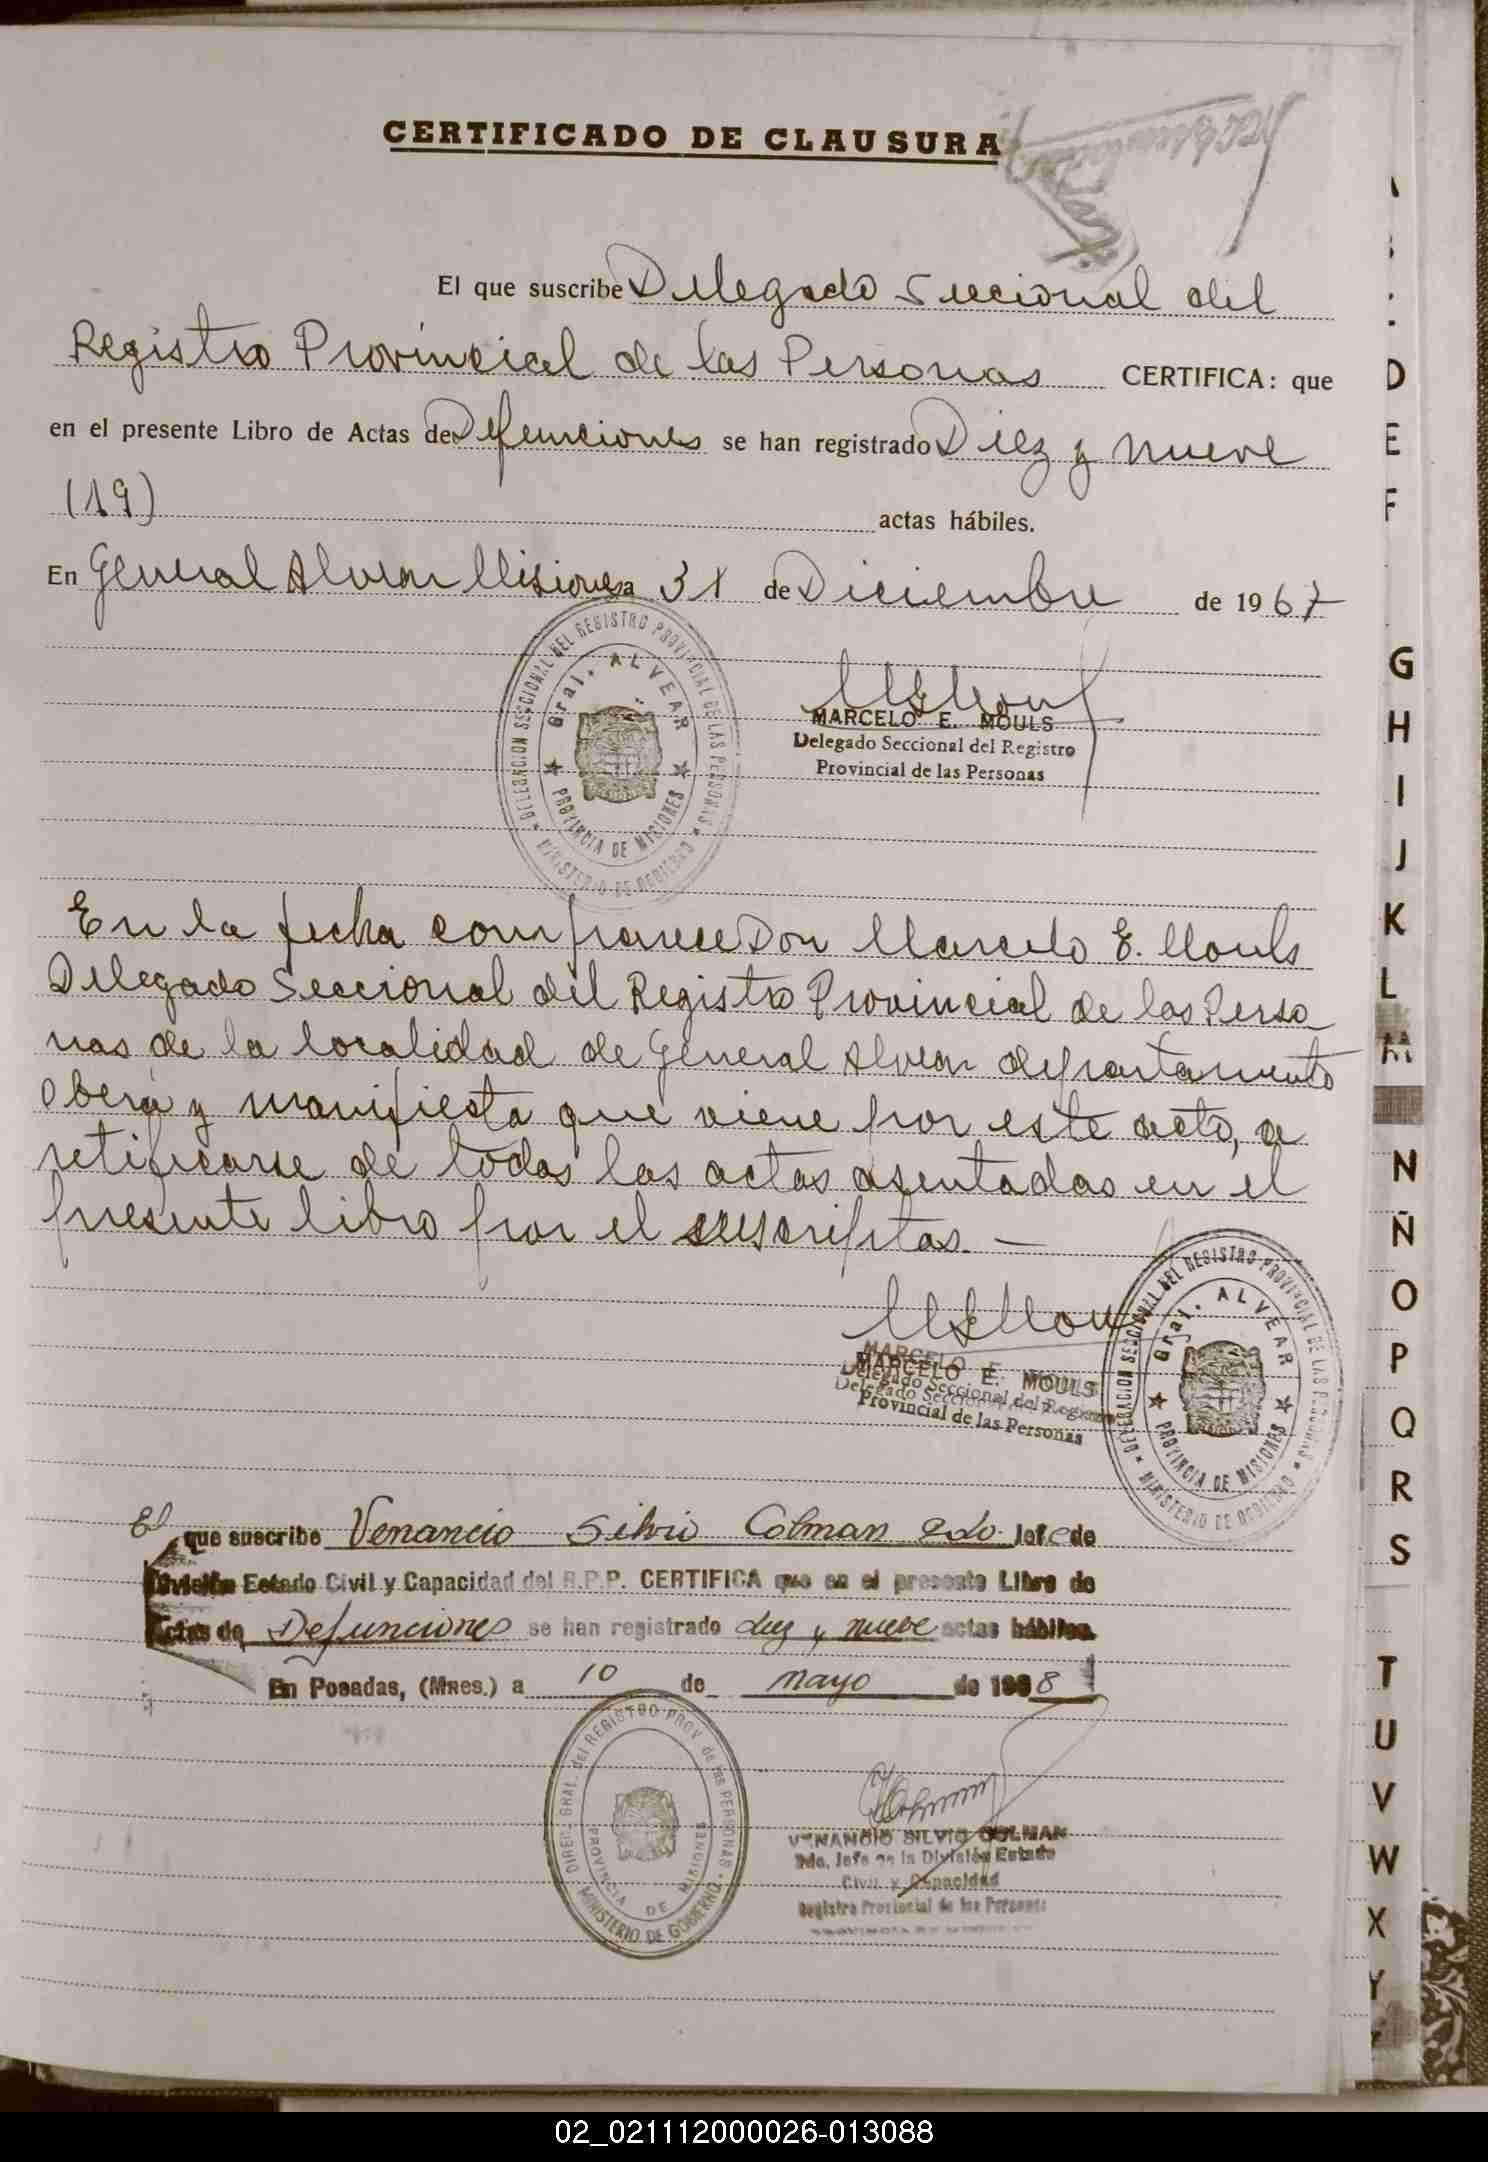 CERTIFICADO DE CLAUSURA
El que suscribe Delegado Seccional del
Registro Provincial de las Personas CERTIFICA: que
en el presente Libro de Actas de Defunciones se han registrado Diez y nueve
(19) actas hábiles.
En General Alvear Misiones a 31 de Diciembre de 1967
DELEGACION SECCIONAL DEL REGISTRO PROVINCIAL DE LAS PERSONAS
Gral. ALVEAR
PROVINCIA DE MISIONES
MINISTERIO DE GOBIERNO
MARCELO E. MOULS
Delegado Seccional del Registro
Provincial de las Personas
En la fecha comparece Don Marcelo E. Mouls
Delegado Seccional del Registro Provincial de las Perso
nas de la localidad de General Alvear departamento
Oberá y manifiesta que viene por este acto, a
retificarse de todas las actas asentadas en el
presente libro por el suscriptas. —
MARCELO E. MOULS
Delegado Seccional del Registro
Provincial de las Personas
DELEGACION SECCIONAL DEL REGISTRO PROVINCIAL DE LAS PERSONAS
Gral. ALVEAR
PROVINCIA DE MISIONES
MINISTERIO DE GOBIERNO
El que suscribe Venancio Silvio Colman 2do. Jefe de
División Estado Civil y Capacidad del R.P.P. CERTIFICA que en el presente Libro de
Actas de Defunciones se han registrado diez y nueve actas hábiles.
En Posadas, (Mnes.) a 10 de mayo de 1968
DIREC. GRAL. del REGISTRO PROV. de las PERSONAS
PROVINCIA DE MISIONES
MINISTERIO DE GOBIERNO
VENANCIO SILVIO COLMAN
2do. Jefe de la División Estado
Civil y Capacidad
Registro Provincial de las Personas
D
E
F
G
H
I
J
K
L
M
N
Ñ
O
P
Q
R
S
T
U
V
W
X
Y
02_021112000026-013088